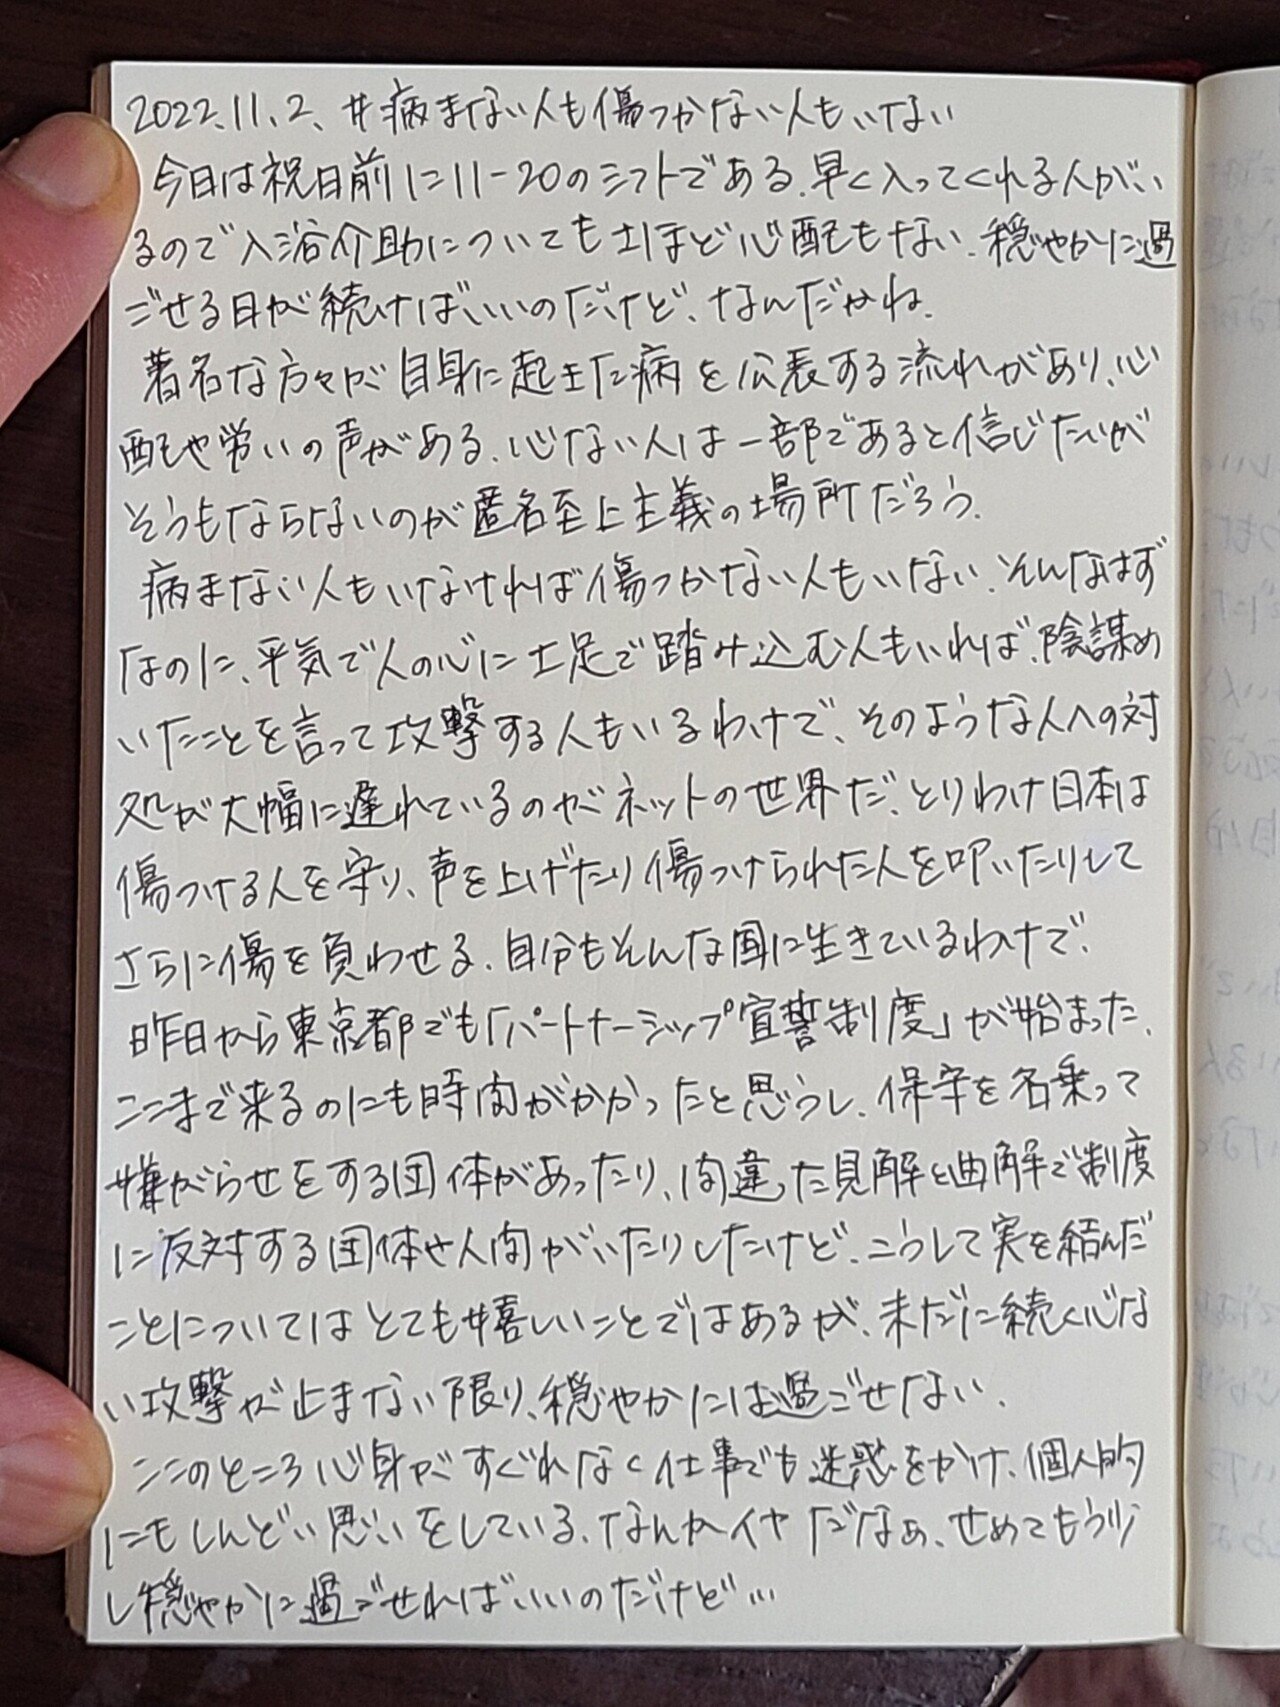 2022.11.2. #病まない人も傷つかない人もいない
今日は祝日前に11-20のシフトである.早く入ってくれる人がい
るので入浴介助についてもさほど心配もない.穏やかに過
ごせる日が続けばいいのだけど、なんだかね.
著名な方々が自身に起きた病を公表する流れがあり、心
配や労いの声がある.心ない人は一部であると信じたいが
そうもならないのが匿名至上主義の場所だろう.
病まない人もいなければ傷つかない人もいない.そんなはず
なのに、平気で人の心に土足で踏み込む人もいれば、陰謀め
いたことを言って攻撃する人もいるわけで、そのような人への対
処が大幅に遅れているのがネットの世界だ.とりわけ日本は
傷つける人を守り、声を上げたり傷つけられた人を叩いたりして
さらに傷を負わせる.自分もそんな国に生きているわけで.
昨日から東京都でも「パートナーシップ宣誓制度」が始まった.
ここまで来るのにも時間がかかったと思うし、保守を名乗って
嫌がらせをする団体があったり、間違った見解と曲解で制度
に反対する団体や人間がいたりしたけど、こうして実を結んだ
ことについてはとても嬉しいことではあるが、未だに続く心な
い攻撃が止まない限り、穏やかには過ごせない.
ここのところ心身がすぐれなく仕事でも迷惑をかけ、個人的
にもしんどい思いをしている.なんかイヤだなぁ、せめてもう少
し穏やかに過ごせればいいのだけど…